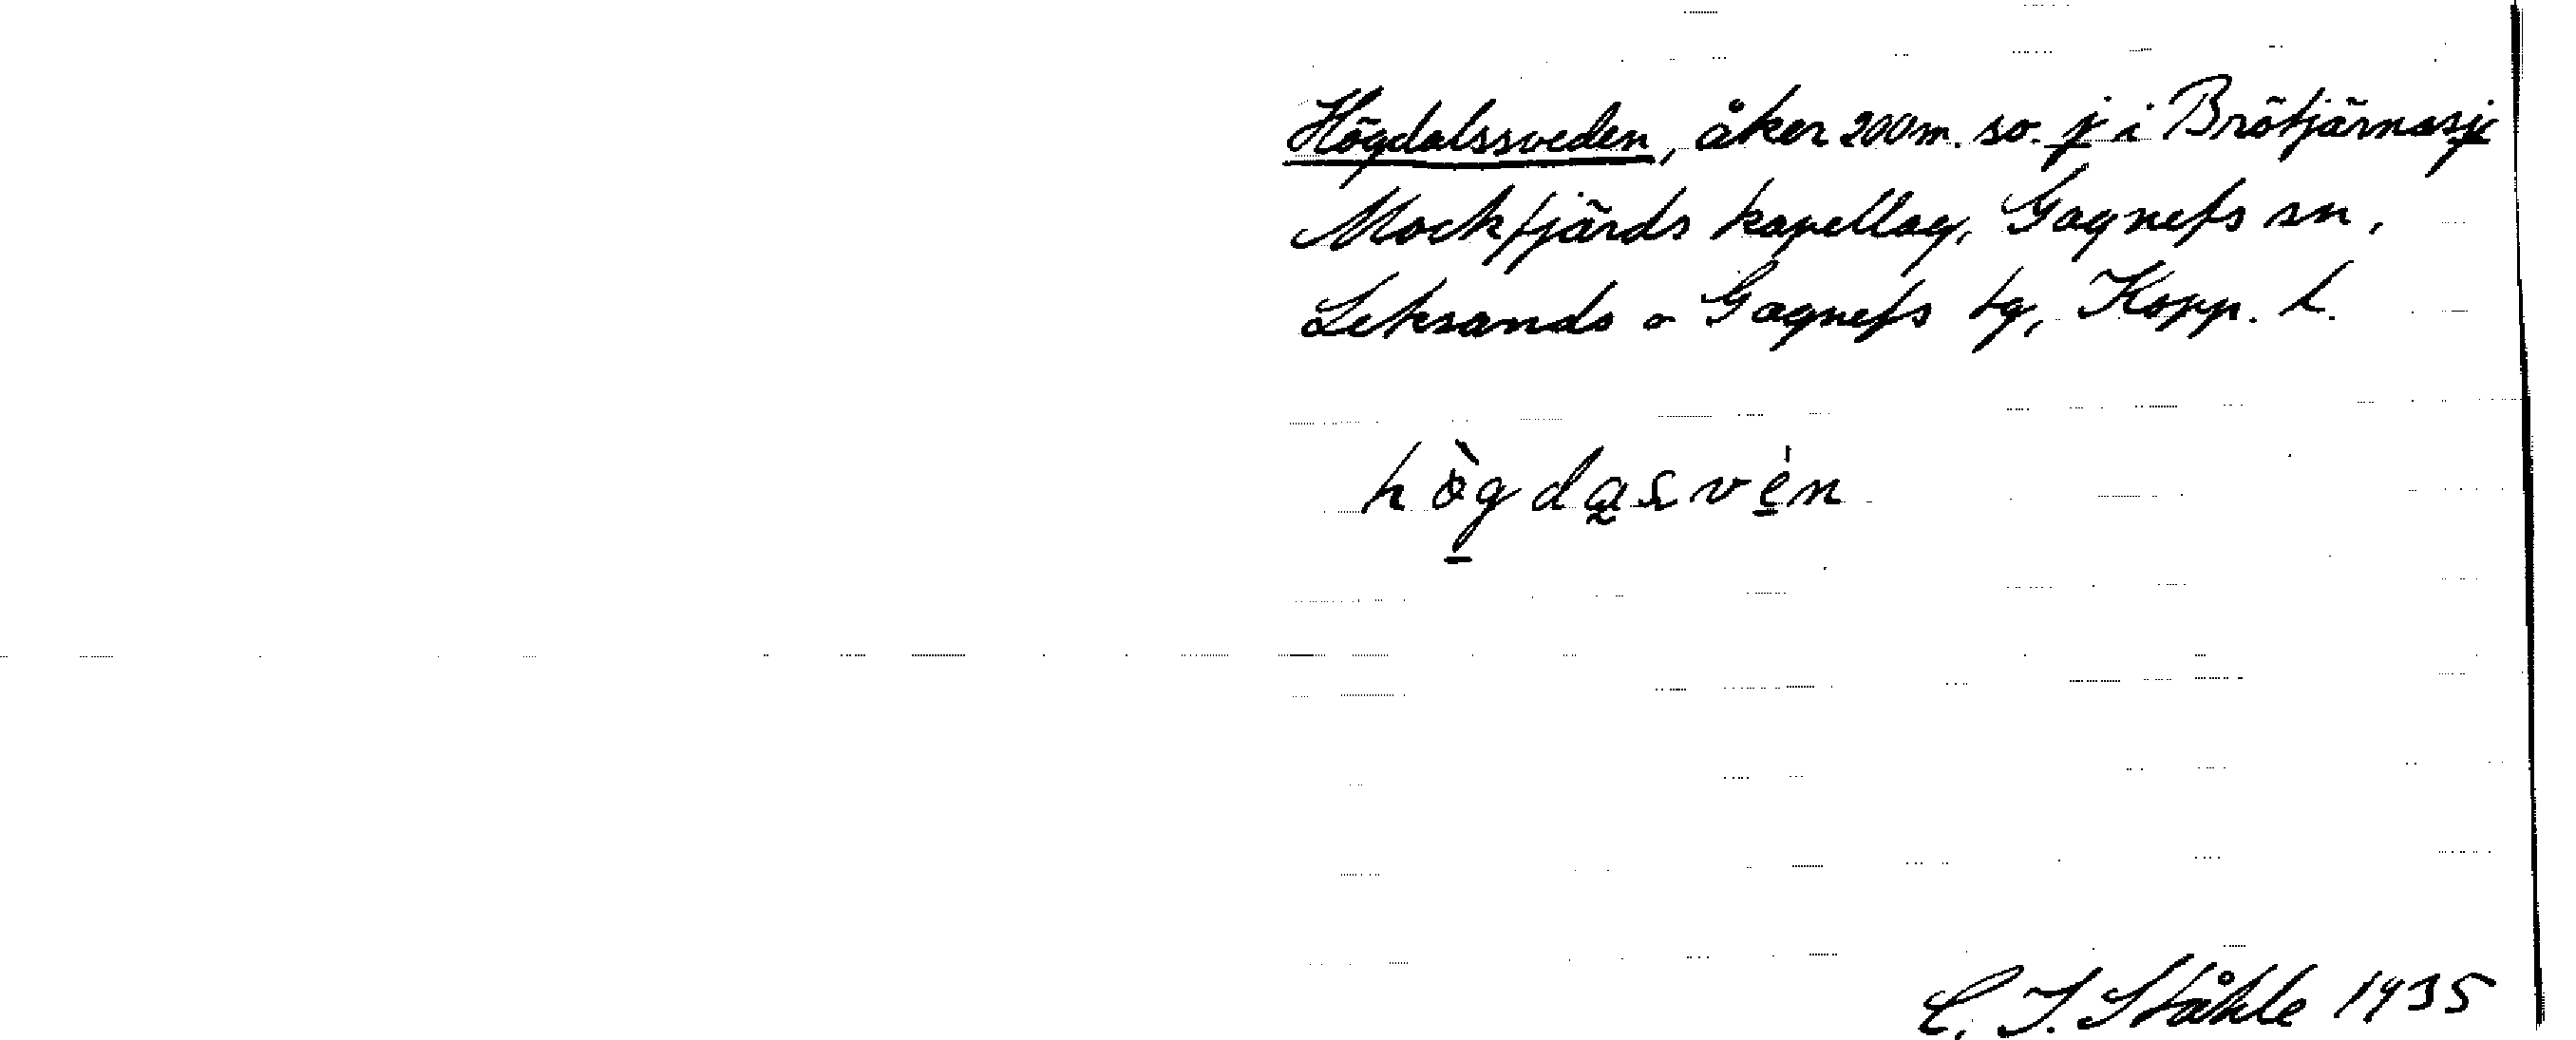 Högdalssveden, åker 200 m. so. j i Brötjärnasj
Mockfjärds kapellag, Gagnefs sn,
Leksands o Gagnefs tg, Kopp. L.
hògdasvén
C. I. Ståhle 1935